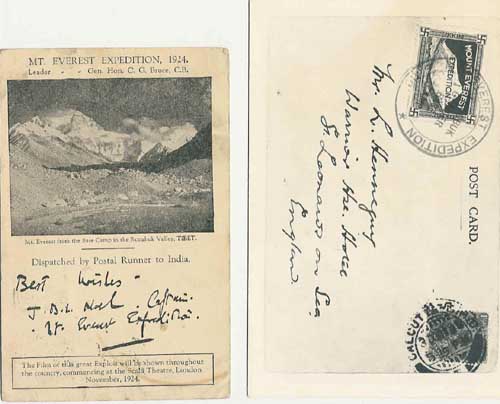 MT. EVEREST EXPEDITION, 1924.
Leader - - Gen. Hon. C. G. Bruce, C.B.
Mt. Everest from the Base Camp in the Rongbuk Valley, TIBET.
Dispatched by Postal Runner to India.
Best Wishes -
J. B. L. Noel. Captain.
Mt. Everest Expedition.
The Film of this great Exploit will be shown throughout
the country, commencing at the Scala Theatre, London
November, 1924.
MOUNT EVEREST
EXPEDITION
EVEREST
EXPEDITION
POST CARD.
Mr. L. Hennequy
Warrior Hse. Hotel
St. Leonards on Sea
England.
CALCUT